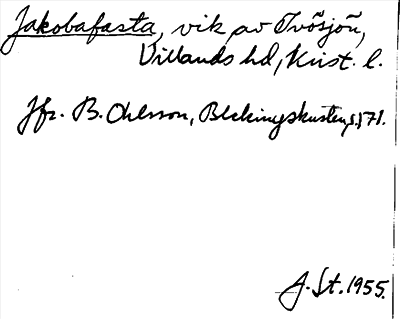 Jakobafasta, vik av Tvösjön,
Villands hd, Krist. l.
Jfr. B. Ohlsson, Blekingskusten, s. 71.
J. St. 1955.